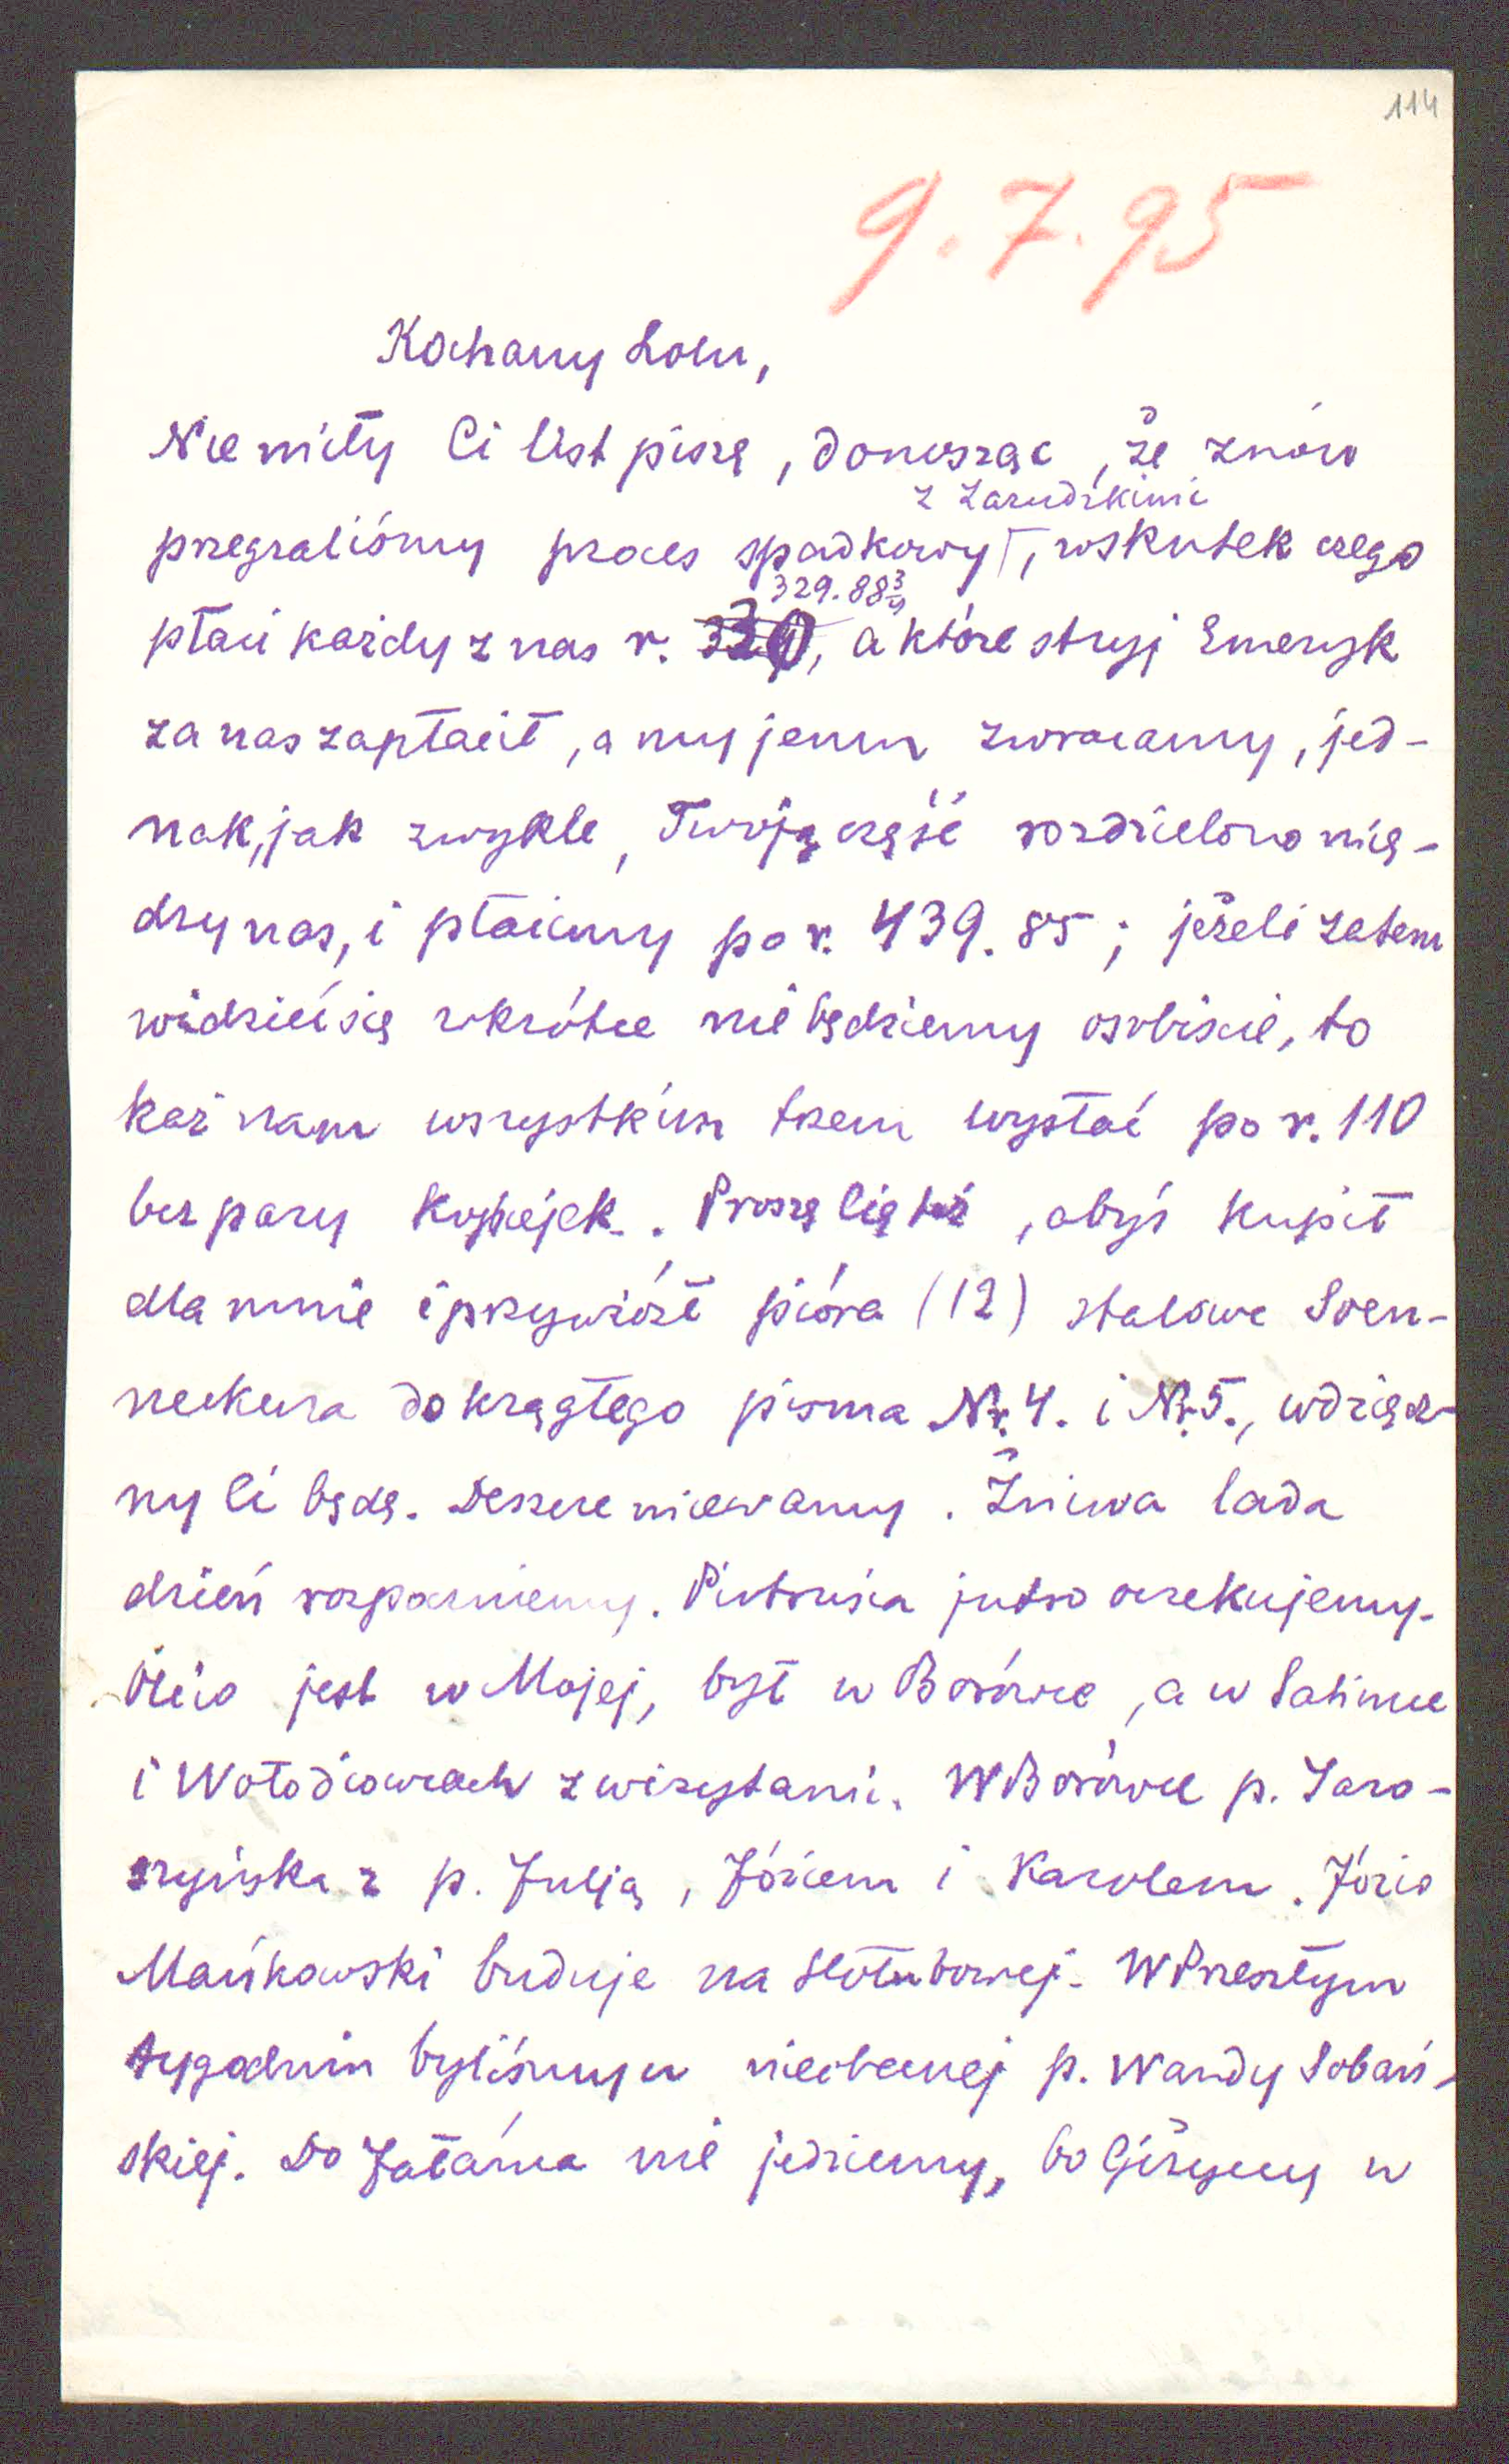 114
9.7.95
Kochany Lolu,
Niemiły Ci list piszę, donosząc, że znów
z Zarudzkimi
przegraliśmy proces spadkowy, wskutek czego
329.88¾
płaci każdy z nas r. 330, a które stryj Emeryk
za nas zapłacił, a my jemu zwracamy, jed-
nak, jak zwykle, Twoją część rozdzielono mię-
dzy nas, i płacimy po r. 439.85; jeżeli zatem
widzieć się wkrótce nie będziemy osobiście, to
każ nam wszystkim trzem wysłać po r. 110
bez pary kopiejek. Proszę Cię też, abyś kupił
dla mnie i przywiózł pióra (12) stalowe Soen-
neckena do krągłego pisma Nr. 4. i Nr. 5., wdzięcz-
ny Ci będę. Deszcze miewamy. Żniwa lada
dzień rozpoczniemy. Pietrusia jutro oczekujemy.
Olcio jest w Mojej, był w Borówce, a w Satimce
i Wołodiowcach z wizytami. W Borówce p. Jaro-
szyńska z p. Julją, Józiem i Karolem. Józio
Mańkowski buduje na Hołubowej. W Przeszłym
tygodniu byliśmy u nieobecnej p. Wandy Sobań-
skiej. Do nie jedziemy, bo Giżyccy w